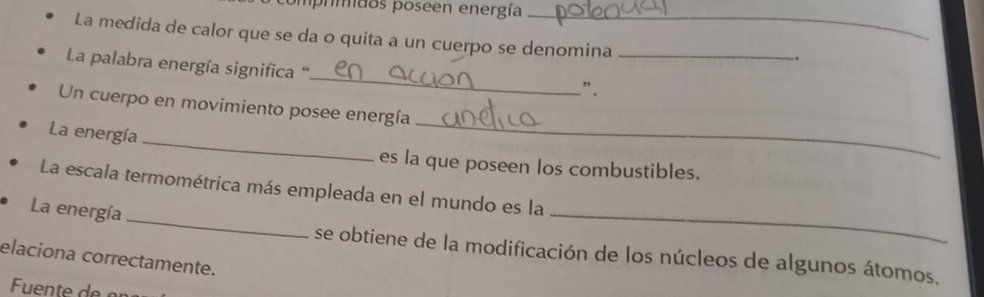 comprimidos poseen energía potencial.
• La medida de calor que se da o quita a un cuerpo se denomina ____________.
• La palabra energía significa “en acción”.
• Un cuerpo en movimiento posee energía cinética.
• La energía ____________ es la que poseen los combustibles.
• La escala termométrica más empleada en el mundo es la ____________.
• La energía ____________ se obtiene de la modificación de los núcleos de algunos átomos.
elaciona correctamente.
Fuente de